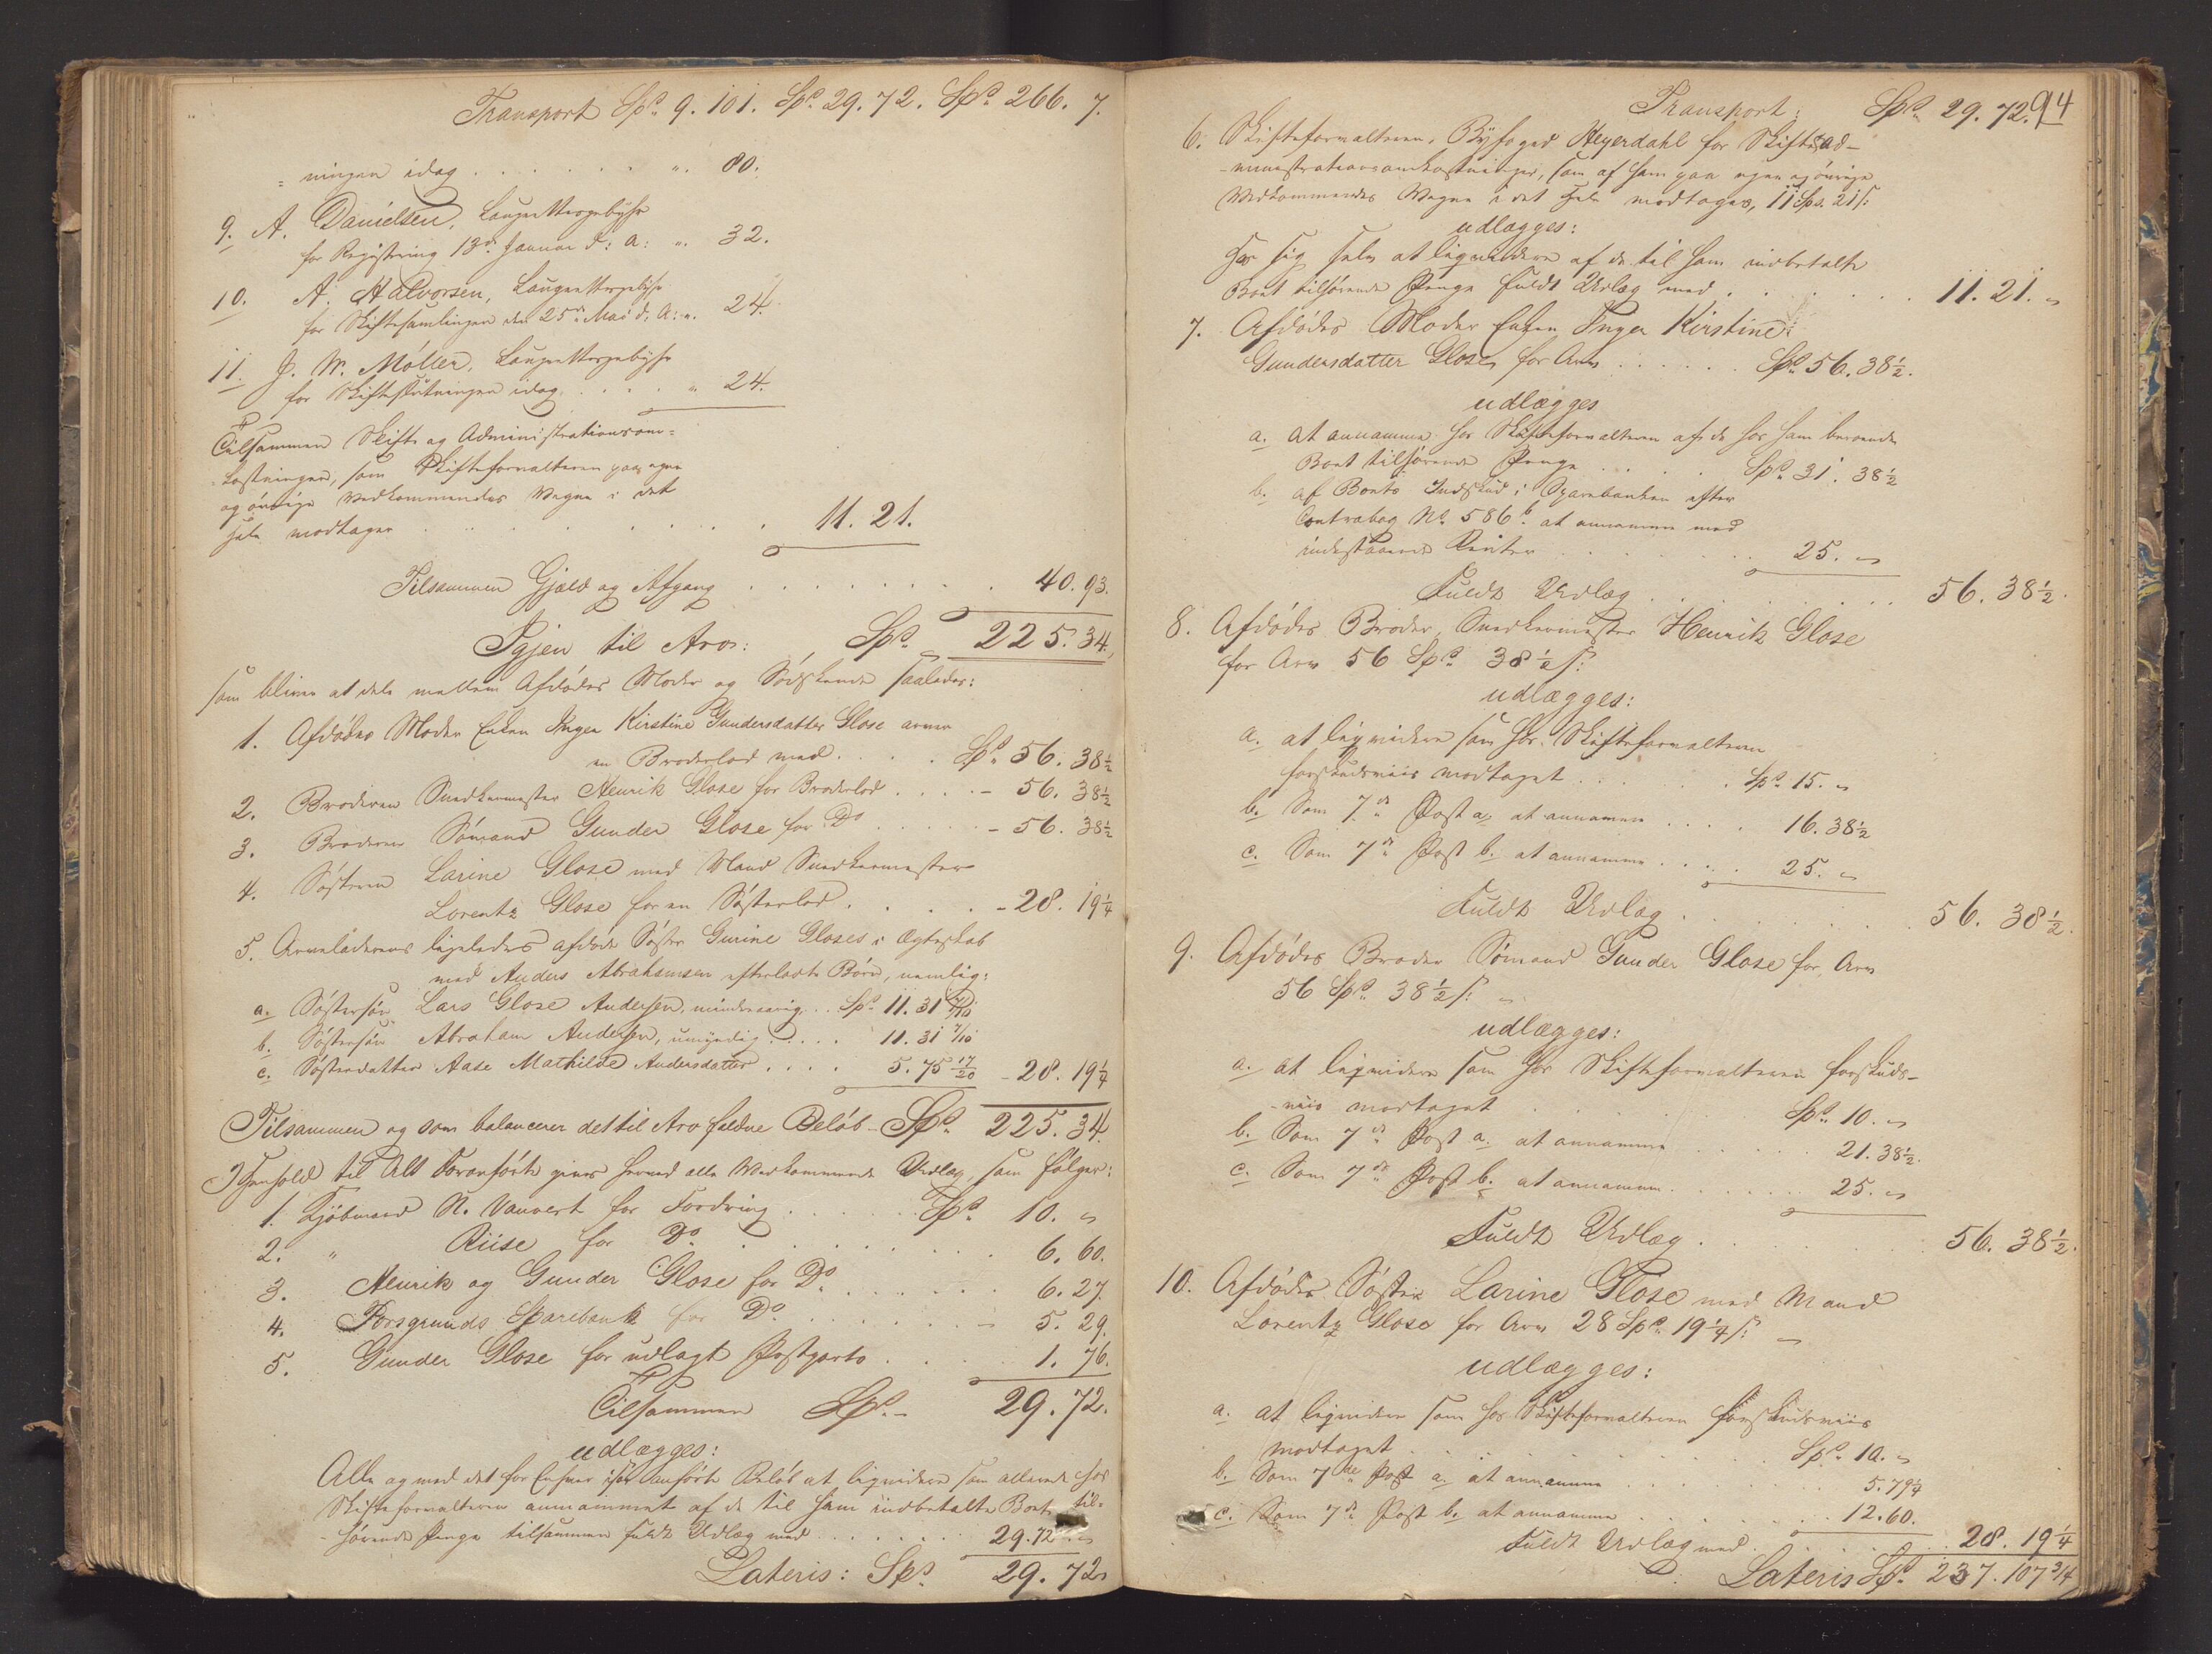 Transport Spd 9. 101. Spd 29. 72. Spd 266. 7.
= ningen idag . . . . . . ". 80.
9. A. Danielsen, Laugrettesgebyhr
for Registrering 13de Januar d: A: ". 32.
10. A. Halvorsen, Laugrettesgebyhr
for Skiftesamlingen den 25de Mai d. A: ". 24.
11. J. W. Møller, Laugrettesgebyhr
for Skifteslutningen idag . . . . " 24.
Tilsammen Skifte og Administrationsom=
kostninger, som Skifteforvalteren paa egne
og øvrige Vedkommendes Vegne i det
hele modtager . . . . . . . . 11. 21.
Tilsammen Gjæld og Afgang . . . . . . . . 40. 93.
Igjen til Arv: Spd 225. 34.
som bliver at dele mellem Afdødes Moder og Sødskende saaledes:
1. Afdødes Moder Enken Inger Kirstine Gundersdatter Glose arver
en Broderlod med . . . . Spd 56. 38½
2. Broderen Snedkermester Henrik Glose for Broderlod . . . . - 56. 38½
3. Broderen Sømand Gunder Glose for Do . . . . . - 56. 38½
4. Søsteren Larine Glose med Mand Snedkermester
Lorentz Glose for en Søsterlod . . . . . - 28. 19¼
5. Arveladerens ligeledes afdøde Søster Gurine Gloses i Ægteskab
med Anders Abrahamsen efterladte Børn, nemlig:
a. Søstersøn Lars Glose Andersen, mindreaarig . . Spd 11. 31 7/10
b. Søstersøn Abraham Andersen, umyndig . . . . . 11. 31 7/10
c. Søsterdatter Aase Mathilde Andersdatter . . . . 5. 75 17/20 - 28. 19¼
Tilsammen og som balancerer det til Arv faldne Beløb - Spd 225. 34.
I Henhold til Alt Foranførte gives herved alle Vedkommende Udlæg som følger:
1. Kjøbmand N. Vauvert for Fordring . . . . . . Spd 10. "
2. " Riise for Do. . . . . . . . . . . 6. 60.
3. Henrik og Gunder Glose for Do. . . . . . . . 6. 27.
4. Porsgrunds Sparebank for Do. . . . . . . . - 5. 29.
5. Gunder Glose for udlagt Postporto . . . . . 1. 76.
Tilsammen Spd. - 29. 72.
udlægges:
Alle og med det for Enhver især anførte Beløb at liqvidere som allerede hos
Skifteforvalteren annammet af de til ham indbetalte Boet til=
hørende Penge tilsammen fuldt Udlæg med . . . . . . . 29. 72. "
Lateris: Spd. 29. 72
Transport: Spd 29. 72. 94
6. Skifteforvalteren, Byfoged Heyerdahl for Skiftead-
-ministrationsomkostninger, som af ham paa egne og øvrige
Vedkommendes Vegne i det Hele modtages, 11 Spd. 21 s:
udlægges:
Hos sig selv at liqvidere af de til ham indbetalte
Boet tilhørende Penge fuldt Udlæg med . . . . . . . 11. 21. "
7. Afdødes Moder Enken Inger Kirstine
Gundersdatter Glose, for Arv . . . . . . Spd 56. 38½.
udlægges
a. at annamme hos Skifteforvalteren af de hos ham beroende
Boet tilhørende Penge . . . . . Spd 31. 38½
b. af Boets Indskud i Sparebanken efter
Contrabog No 586 b. at annamme med
indestaaende Renter . . . . . . . . 25. "
Fuldt Udlæg . . . . . . . . . 56. 38½.
8. Afdødes Broder, Snedkermester Henrik Glose
for Arv 56 Spd 38½ s:
udlægges:
a. at liqvidere som hos Skifteforvalteren
forskudsviis modtaget . . . . . . Spd 15. "
b. Som 7de Post a. at annamme . . . . 16. 38½
c. Som 7de Post b. at annamme . . . . 25. "
Fuldt Udlæg . . . . . . . . . 56. 38½.
9. Afdødes Broder Sømand Gunder Glose for Arv
56 Spd. 38½ s: "
udlægges:
a. at liqvidere som hos Skifteforvalteren forskuds-
-viis modtaget . . . . . . . . Spd. 10. "
b. Som 7de Post a. at annamme . . . . . . . 21. 38½.
c. Som 7de Post b. at annamme . . . . . . . 25. "
Fuldt Udlæg . . . . . . . . . 56. 38½.
10. Afdødes Søster Larine Glose med Mand
Lorentz Glose for Arv 28 Spd. 19¼ s: -
udlægges:
a. at liqvidere som hos Skifteforvalteren forskudsviis
modtaget . . . . . . . . . . . Spd. 10. "
b. Som 7de Post a. at annamme . . . . . . . 5. 79¼
c. Som 7de Post b. at annamme . . . . . . . 12. 60.
Fuldt Udlæg med . . . . . . . 28. 19¼
Lateris Spd. 237. 107¾